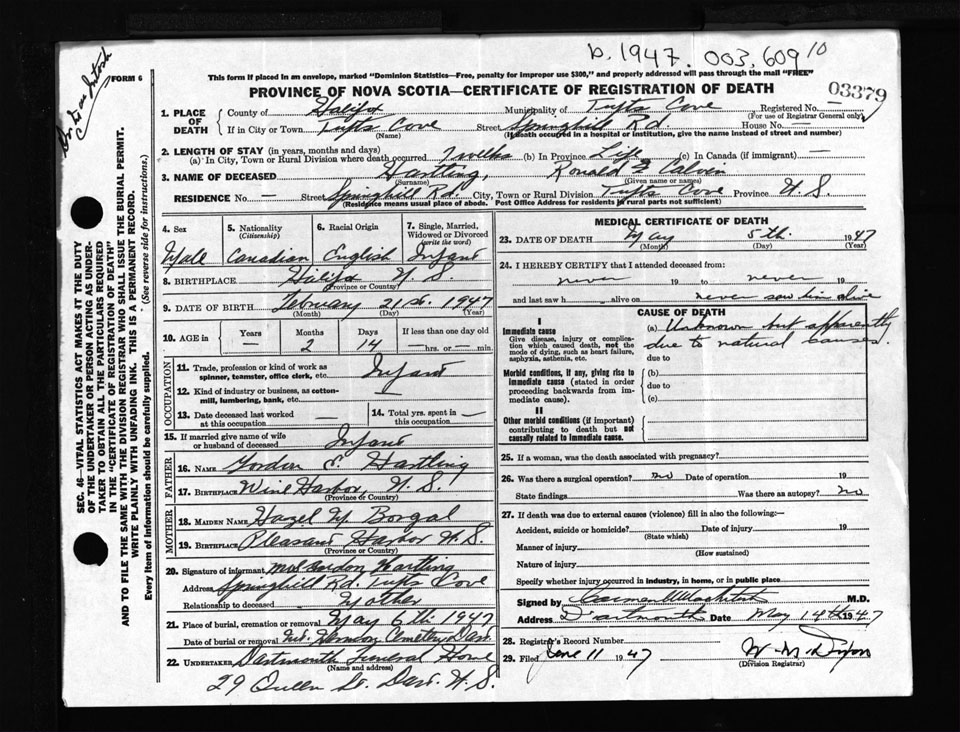 b. 1947. 003,609 10
FORM 6
This form if placed in an envelope, marked "Dominion Statistics—Free, penalty for improper use $300," and properly addressed will pass through the mail "FREE"
PROVINCE OF NOVA SCOTIA—CERTIFICATE OF REGISTRATION OF DEATH
03379
1. PLACE OF DEATH
County of Halifax Municipality of Tufts Cove Registered No. —
(For use of Registrar General only)
If in City or Town Tufts Cove Street Springhill Rd. House No. —
(Name) (If death occurred in a hospital or institution, give the name instead of street and number)
2. LENGTH OF STAY (in years, months and days)
(a) In City, Town or Rural Division where death occurred 7 weeks (b) In Province Life (c) In Canada (if immigrant) —
3. NAME OF DECEASED Hartling, Ronald Calvin
(Surname) (Given name or names)
RESIDENCE No. — Street Springhill Rd. City, Town or Rural Division Tufts Cove Province N. S.
(Residence means usual place of abode. Post Office Address for residents in rural parts not sufficient)
4. Sex Male
5. Nationality (Citizenship) Canadian
6. Racial Origin English
7. Single, Married, Widowed or Divorced (write the word) Infant
8. BIRTHPLACE Halifax N. S.
(Province or Country)
9. DATE OF BIRTH February 21st. 1947
(Month) (Day) (Year)
10. AGE in Years — Months 2 Days 14 If less than one day old —hrs. or —min.
OCCUPATION
11. Trade, profession or kind of work as spinner, teamster, office clerk, etc. Infant
12. Kind of industry or business, as cotton-mill, lumbering, bank, etc. —
13. Date deceased last worked at this occupation —
14. Total yrs. spent in this occupation —
15. If married give name of wife or husband of deceased Infant
FATHER
16. NAME Gordon E. Hartling
17. BIRTHPLACE Wine Harbor, N. S.
(Province or Country)
MOTHER
18. MAIDEN NAME Hazel M Borgal
19. BIRTHPLACE Pleasant Harbor N. S.
(Province or Country)
20. Signature of informant Mrs Gordon Hartling
Address Springhill Rd. Tufts Cove
Relationship to deceased Mother
21. Place of burial, cremation or removal May 6th. 1947
Date of burial or removal Mt. Hermon Cemetery Dart.
22. UNDERTAKER Dartmouth Funeral Home
(Name and address)
29 Queen St. Dart. N. S.
MEDICAL CERTIFICATE OF DEATH
23. DATE OF DEATH May 5th. 1947
(Month) (Day) (Year)
24. I HEREBY CERTIFY that I attended deceased from:
never 19 to never 19
and last saw h alive on never saw him alive
CAUSE OF DEATH
I
Immediate cause
Give disease, injury or complication which caused death, not the mode of dying, such as heart failure, asphyxia, asthenia, etc.
(a) Unknown but apparently
due to natural causes.
Morbid conditions, if any, giving rise to immediate cause (stated in order proceeding backwards from immediate cause).
(b)
due to
(c)
II
Other morbid conditions (if important) contributing to death but not causally related to immediate cause.
25. If a woman, was the death associated with pregnancy?
26. Was there a surgical operation? no Date of operation 19
State findings Was there an autopsy? no
27. If death was due to external causes (violence) fill in also the following:—
Accident, suicide or homicide? Date of injury 19
(State which)
Manner of injury
(How sustained)
Nature of injury
Specify whether injury occurred in industry, in home, or in public place
Signed by M.D.
Address Dartmouth Date May 14th 1947
28. Registrar's Record Number
29. Filed June 11 1947 W. M. Dixon
(Division Registrar)
Dr. MacIntosh
SEC. 46—VITAL STATISTICS ACT MAKES IT THE DUTY
OF THE UNDERTAKER OR PERSON ACTING AS UNDER-
TAKER TO OBTAIN ALL THE PARTICULARS REQUIRED
IN THE "CERTIFICATE OF REGISTRATION OF DEATH"
AND TO FILE THE SAME WITH THE DIVISION REGISTRAR WHO SHALL ISSUE THE BURIAL PERMIT.
WRITE PLAINLY WITH UNFADING INK. THIS IS A PERMANENT RECORD.
Every item of Information should be carefully supplied. (See reverse side for instructions.)